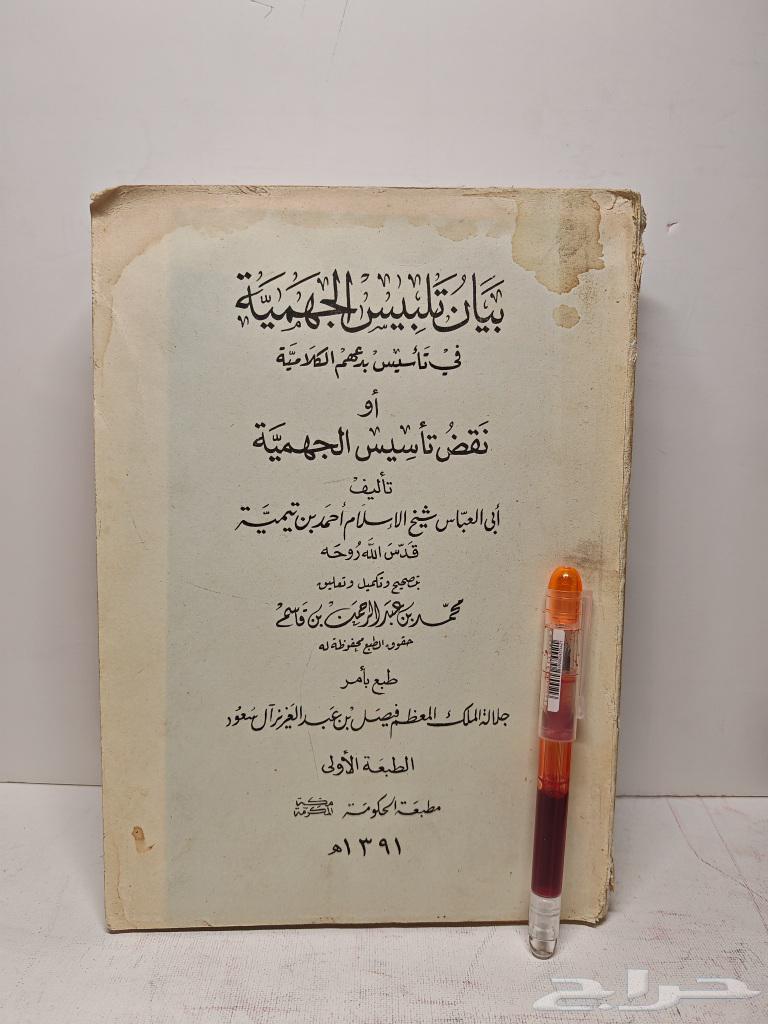 بَيَانُ تَلبِيسِ الجَهَميَّة
في تَأسِيسِ بِدَعِهم الكَلَاميَّة
أو
نَقضُ تأسِيسِ الجهميَّة
تأليف
أبي العبّاس شيخ الإسلام أحمَد بن تيميَّة
قدّسَ اللَّه رُوحَه
بتصحيح وتكميل وتعليق
محمّد بن عَبد الرحمن بن قاسم
حقوق الطبع محفوظة له
طبع بأمر
جلالة الملك المعظم فيصَل بن عَبد العَزيز آل سعُود
الطبعَة الأولى
مطبعَة الحكومَة مكة المكرمة
١٣٩١ه
حراج